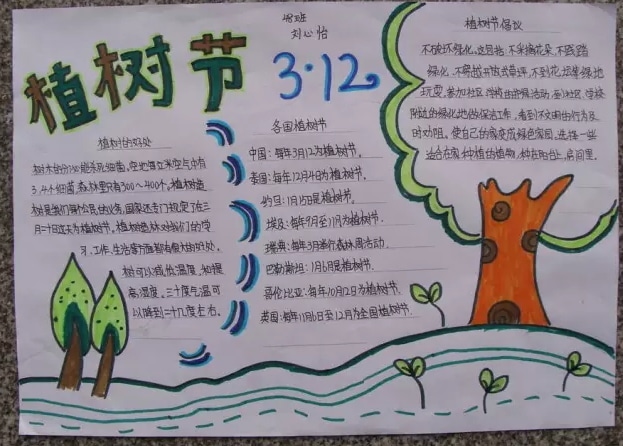 植树节
班
刘心怡
3·12
植树的好处
树木的分泌能杀死细菌,空地每立米空气中有
3、4个细菌,森林里只有300~400个,植树造
林是我们每个公民的义务,国家还专门规定了在三
月十二日这天为植树节,植树造林对我们的学
习、工作、生活等方面都有很大的好处。
树可以减低温度和提
高湿度。三十度气温可
以降到二十几度左右。
各国植树节
中国:每年3月12为植树节。
泰国:每年12月4日为植树节。
约旦:1月15日是植树节。
埃及:每年9月至11月为植树节。
瑞典:每年3月举行森林周活动
巴勒斯坦:1月6日是植树节.
哥伦比亚:每年10月2日为植树节.
英国:每年11月6日至12月为全国植树节.
植树节倡议
不破坏绿化,这包括:不采摘花朵,不践踏
绿化,不穿越开放式草坪,不到花坛等绿地
玩耍,参加社区、学校的护绿活动,到社区、学校
附近的绿化地做保洁工作,看到不文明的行为及
时劝阻,使自己的家变成绿色家园,选择一些
适合在家种植的植物,种在阳台上、房间里。